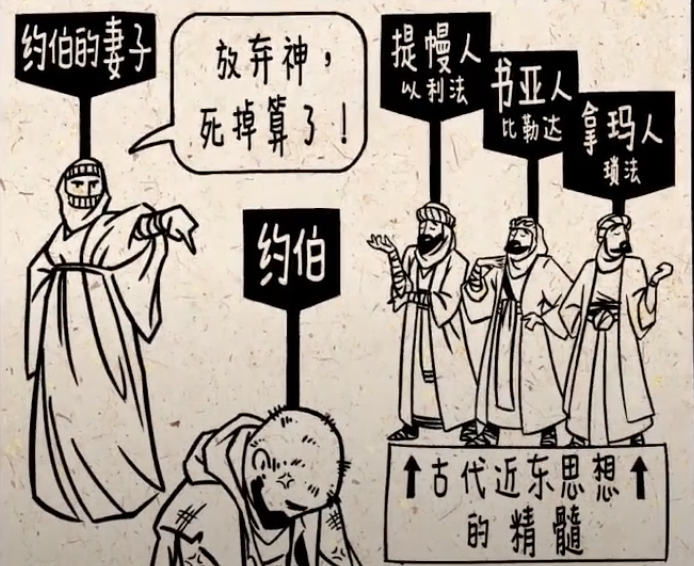 约伯的妻子
放弃神，
死掉算了！
提幔人
以利法
书亚人
比勒达
拿玛人
琐法
约伯
↑古代近东思想↑
的精髓